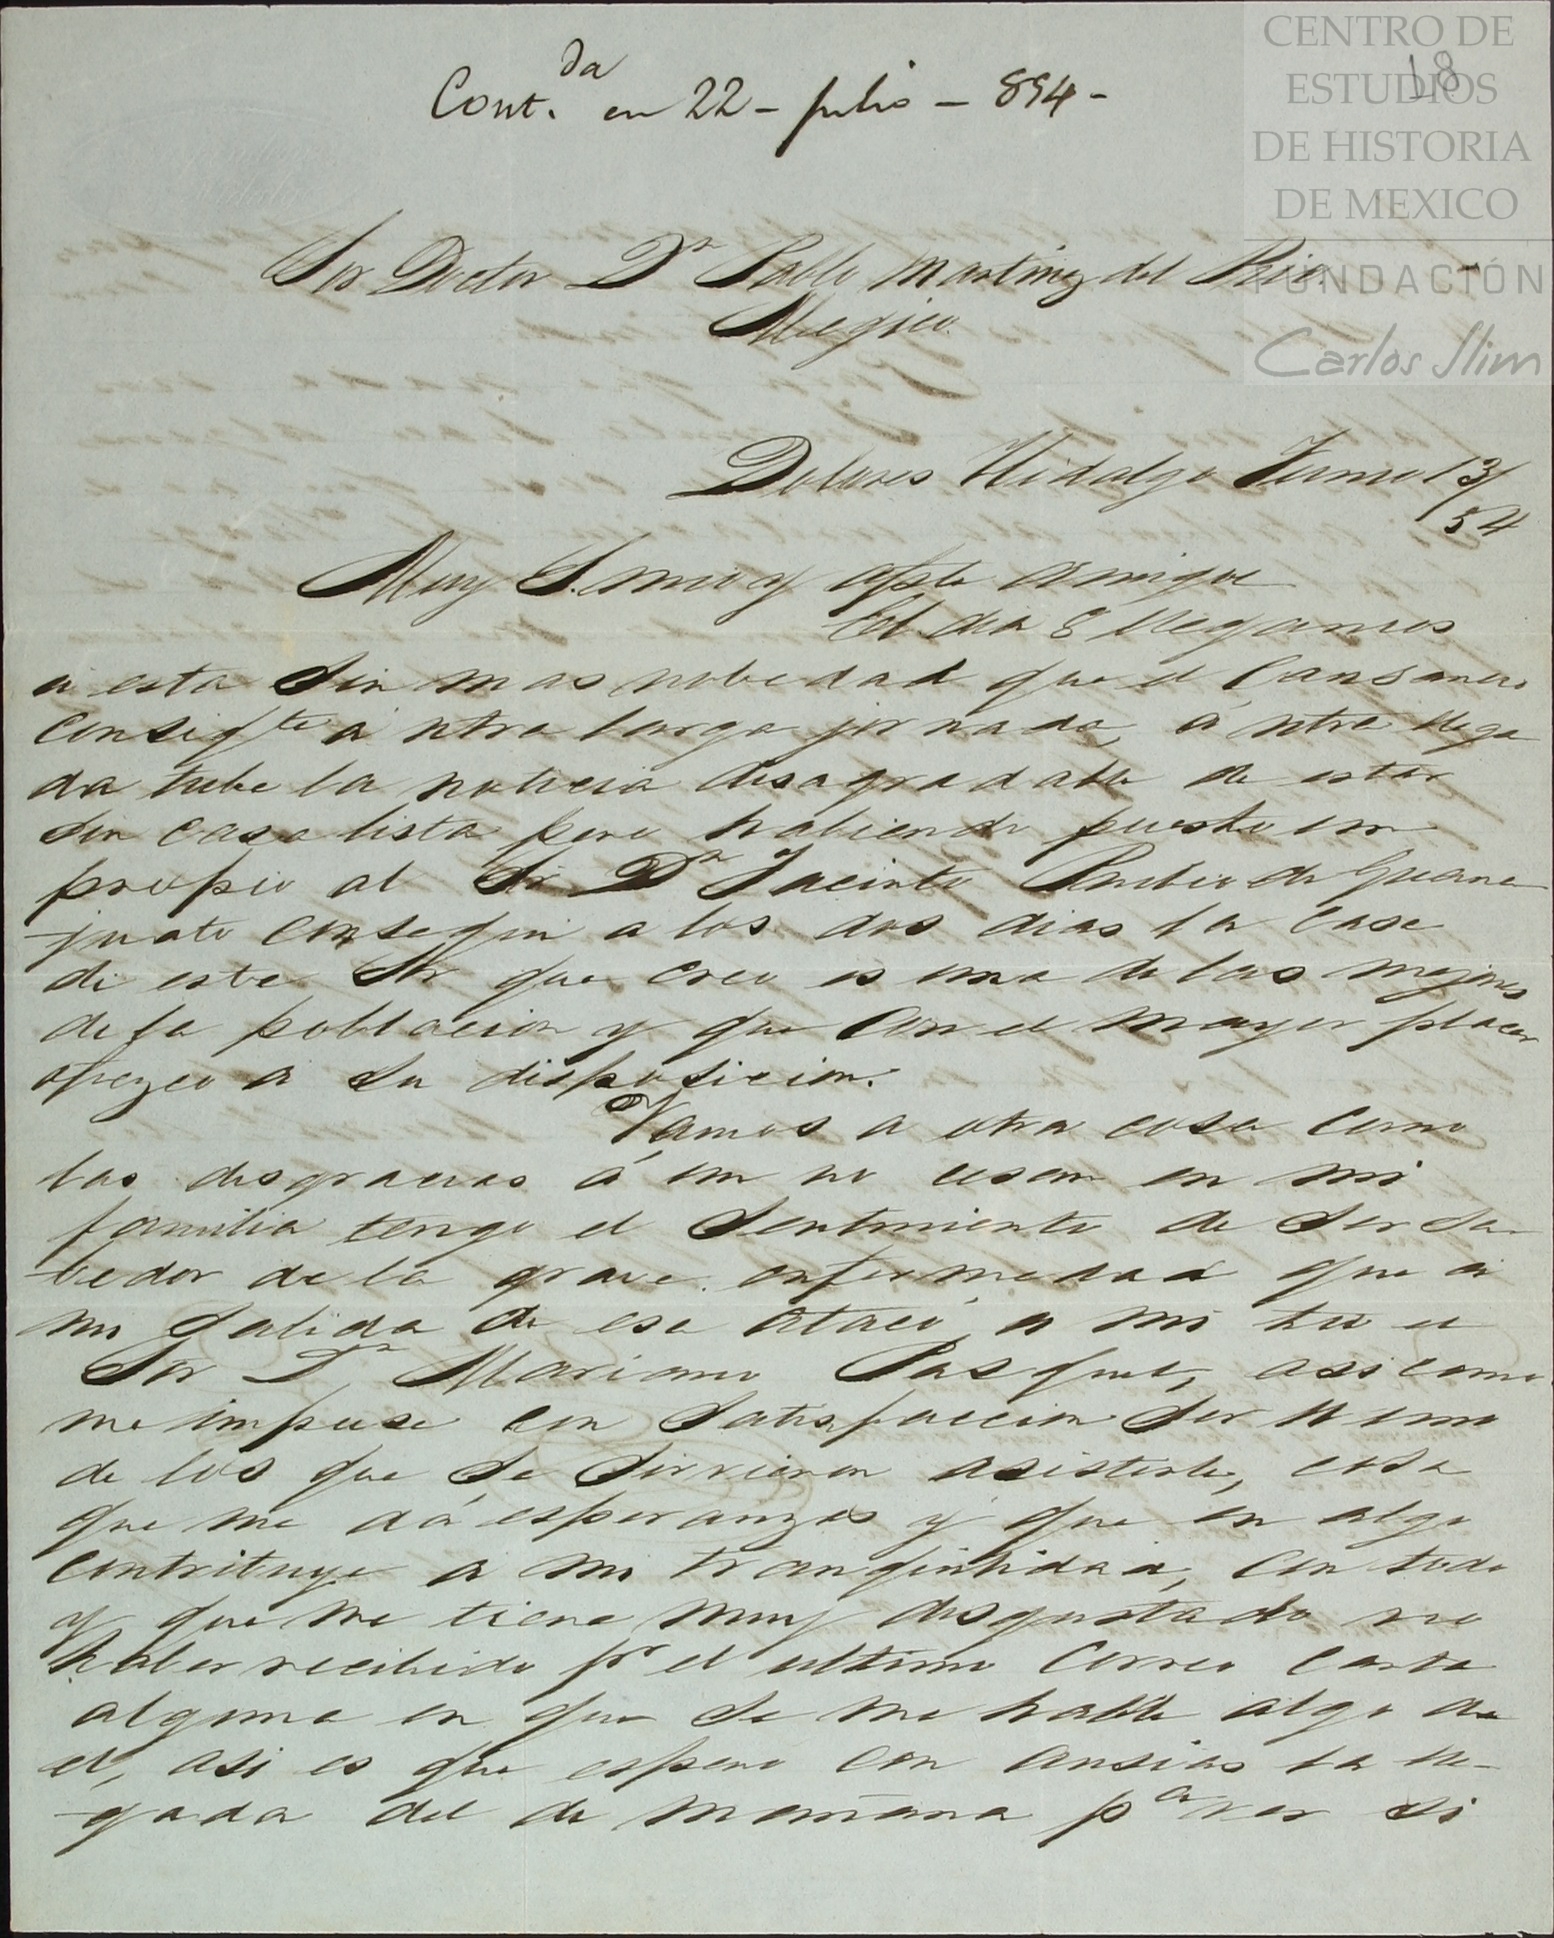 Cont.da en 22 - julio - 854 -
18
CENTRO DE
ESTUDIOS
DE HISTORIA
DE MEXICO
FUNDACIÓN
Carlos Slim
Sor Doctor Dn Pablo Martinez del Rio.
Megico.
Dolores Hidalgo Junio 13/
54
Muy S. mio y afto amigo
El dia 8 llegamos
a esta sin mas nobedad que el cansancio
consigte á ntra larga jornada, á ntra llega
da tube la noticia desagradable de estar
sin casa lista pero habiendo puesto un
propio al Sr Dn Jacinto Rubio de Guana
juato conseguí a los dos dias la casa
de este Sr que creo es una de las mejores
de la poblacion y que con el mayor placer
ofrezco a su disposicion.
Vamos a otra cosa como
las desgracias á un no cesan en mi
familia tengo el sentimiento de ser sa-
bedor de la grave enfermedad que á
mi salida de esa atacó a mi tio el
Sor Dn Mariano Pasquel, asi como
me impuse con satisfaccion ser U uno
de los que se sirvieron asistirle, cosa
que me dá esperanzas y que en algo
contribuye a mi tranquilidad, con todo
y que me tiene muy disgustado no
haber recibido pr el ultimo correo carta
alguna en que se me hable algo de
el, asi es que espero con ansias la lle-
gada del de mañana pa ver si